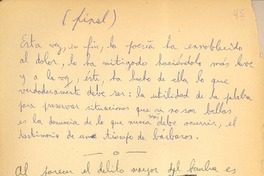 45
(final)
Esta vez, en fin, la poesía ha ennoblecido
al dolor, lo ha mitigado haciéndolo más leve
y a la vez, éste, ha hecho de ella lo que
verdaderamente debe ser: la utilidad de la palabra
para preservar situaciones que si no son bellas
es la denuncia de lo que nunca debe ocurrir, el
testimonio de un tiempo de bárbaros.
— o —
Al parecer el delito mayor del hombre es